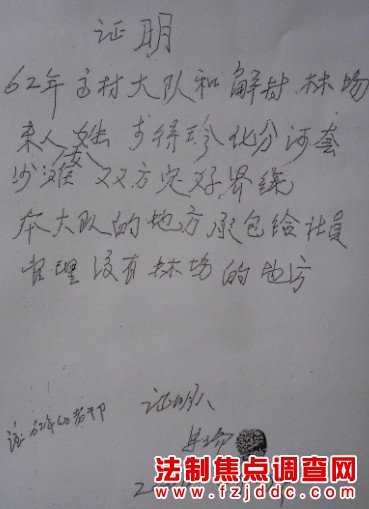 证明
62年高村大队和解村林场
来人姓 步得珍化分河套
沙滩 双方定好界线
本大队的地方承包给社员
管理没有林场的地方
证明人
注:62年的老干部
法制焦点调查网
www.fzjddc.com